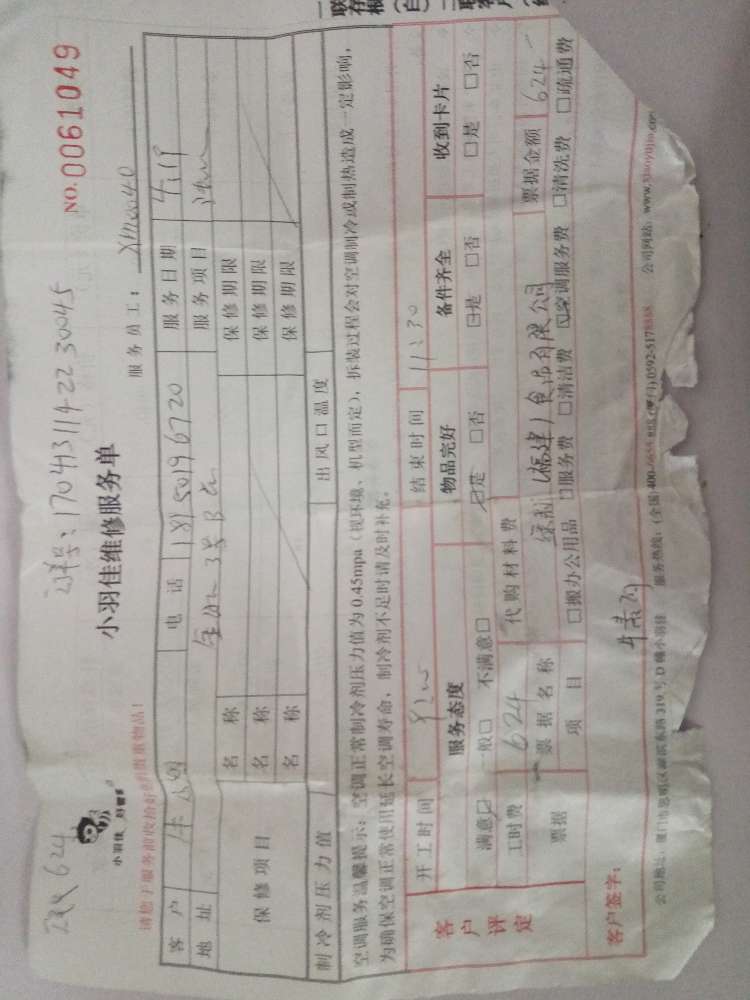 624
NO.0061049
单号:170413114-2230045
小羽佳
小羽佳维修服务单
请您于服务前收拾好您的贵重物品!
服务员工:
客户 电话 18150196720 服务日期
地址 服务项目
保修项目 名称 保修期限
名称 保修期限
名称 保修期限
制冷剂压力值 出风口温度
空调服务温馨提示:空调正常制冷剂压力值为0.45mpa(视环境、机型而定),拆装过程会对空调制冷或制热造成一定影响,
为确保空调正常使用延长空调寿命,制冷剂不足时请及时补充。
客户评定 开工时间 结束时间 11:30
服务态度 物品完好 备件齐全 收到卡片
满意☑ 一般□ 不满意□ ☑是 □否 ☑是 □否 □是 □否
工时费 624 代购材料费 票据金额 624
票据 票据名称 (福建)食品有限公司
项目 □搬办公用品 □服务费 □清洁费 ☑空调服务费 □清洗费 □疏通费
客户签字:
公司地址:厦门市思明区湖滨东路319号D幢小羽佳 服务热线:(全国)400- (厦门)0592-5178888 公司网站:www.xiaoyujia.com